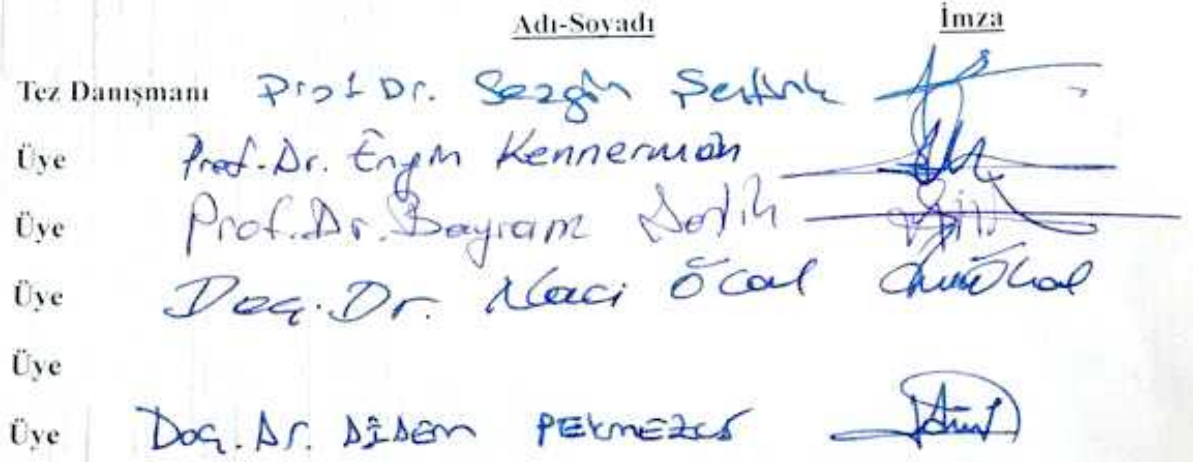 Adı-Soyadı İmza
Tez Danışmanı Prof Dr. Sezgin Şentürk
Üye Prof. Dr. Engin Kennerman
Üye Prof. Dr. Bayram
Üye Doç. Dr. Naci Öcal
Üye
Üye Doç. Dr. DİDEM PEKMEZCİ